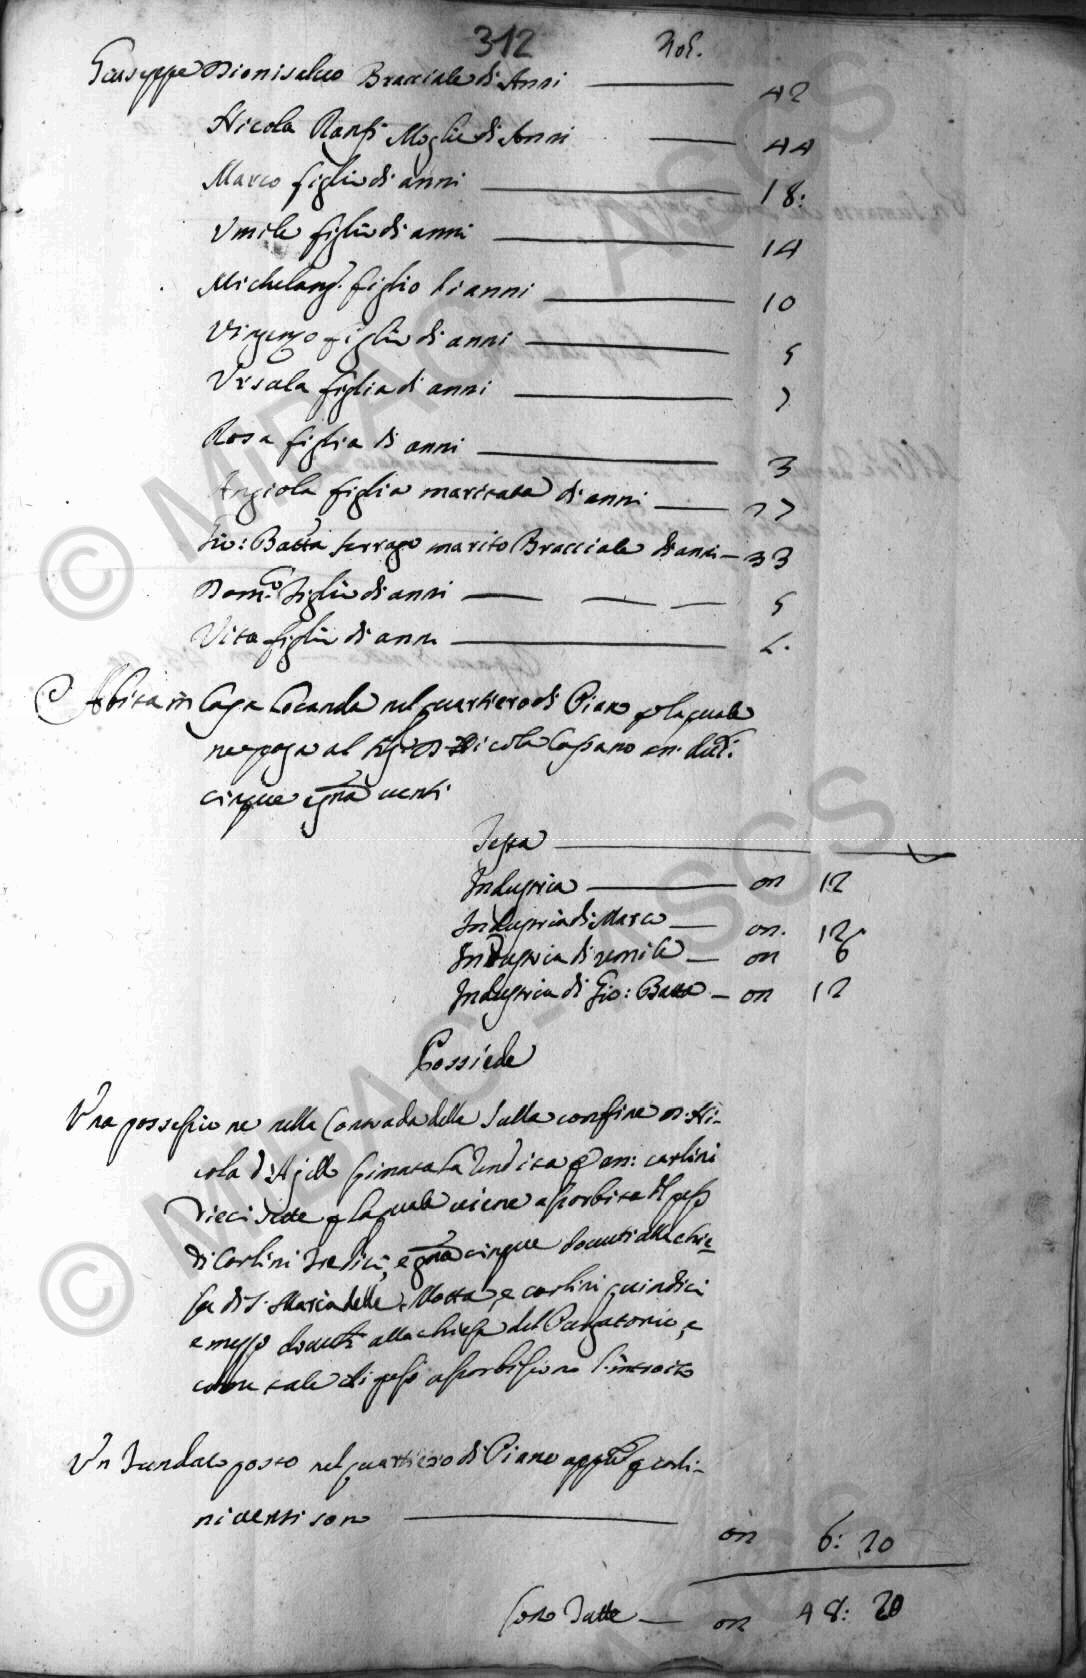 312
Giuseppe Dionisalvo Bracciale di Anni — 42
Nicola Ranfi Moglie di Anni — 44
Marco figlio di anni — 18:
Umile figlio di anni — 14
Michelang.o figlio di anni — 10
Vingenzo figlio di anni — 5
Ursula figlia di anni — 7
Rosa figlia di anni — 3
Angiola figlia maritata di anni — 27
Gio: Batta Serrago marito Bracciale di anni — 33
Dom.co figlio di anni — 5
Vita figlia di anni — 2.
Abita in Casa locanda nel quartiero di Piano p la quale
ne paga al Sig.r D. Nicola Cassano an: duti:
cinque e gna venti
Testa —
Industria — on 12
Industria di Marco — on. 12
Industria di Umile — on 6
Industria di Gio: Batta — on 12
Possiede
Una possessione nella Contrada delle confine D. Ni-
cola d'Ajello stimata la rendita p an: carlini
dieci sette p la quale viene assorbita di pesi
di Carlini tredici, e gna cinque dovuti alla chie-
sa di S. Maria della Motta, e carlini quindici
e mezzo dovuti alla chiesa del Purgatorio, e
come tale di pesi assorbiscono l'introito
Un posto nel quartiero di Piano appto p carli-
ni venti sono — on 6: 20
Sono Tutte — on 48: 20
© MIBAC - ASCS
© MIBAC - ASCS
ASCS